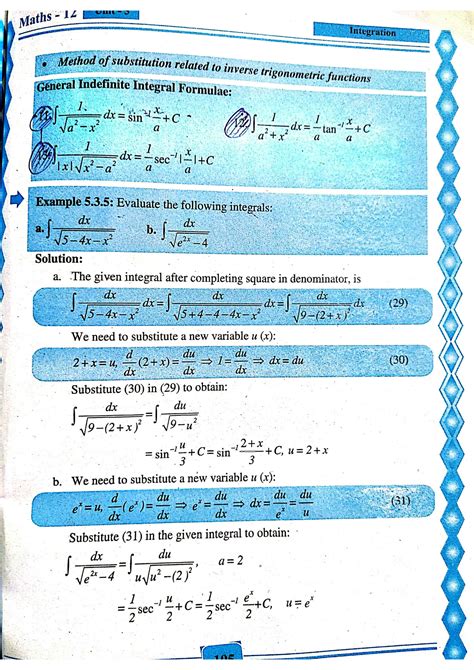 Maths - 12
Unit - 5
Integration
• Method of substitution related to inverse trigonometric functions
General Indefinite Integral Formulae:
∫ 1/√(a²−x²) dx = sin⁻¹ x/a + C
∫ 1/(a²+x²) dx = 1/a tan⁻¹ x/a + C
∫ 1/(|x|√(x²−a²)) dx = 1/a sec⁻¹ |x/a| + C
Example 5.3.5: Evaluate the following integrals:
a. ∫ dx/√(5−4x−x²) b. ∫ dx/√(e²ˣ−4)
Solution:
a. The given integral after completing square in denominator, is
∫ dx/√(5−4x−x²) dx = ∫ dx/√(5+4−4−4x−x²) dx = ∫ dx/√(9−(2+x)²) dx (29)
We need to substitute a new variable u (x):
2+x = u, d/dx (2+x) = du/dx ⇒ 1 = du/dx ⇒ dx = du (30)
Substitute (30) in (29) to obtain:
∫ dx/√(9−(2+x)²) = ∫ du/√(9−u²)
= sin⁻¹ u/3 + C = sin⁻¹ (2+x)/3 + C, u = 2+x
b. We need to substitute a new variable u (x):
eˣ = u, d/dx (eˣ) = du/dx ⇒ eˣ = du/dx ⇒ dx = du/eˣ = du/u (31)
Substitute (31) in the given integral to obtain:
∫ dx/√(e²ˣ−4) = ∫ du/(u√(u²−(2)²)), a = 2
= 1/2 sec⁻¹ u/2 + C = 1/2 sec⁻¹ eˣ/2 + C, u = eˣ
195